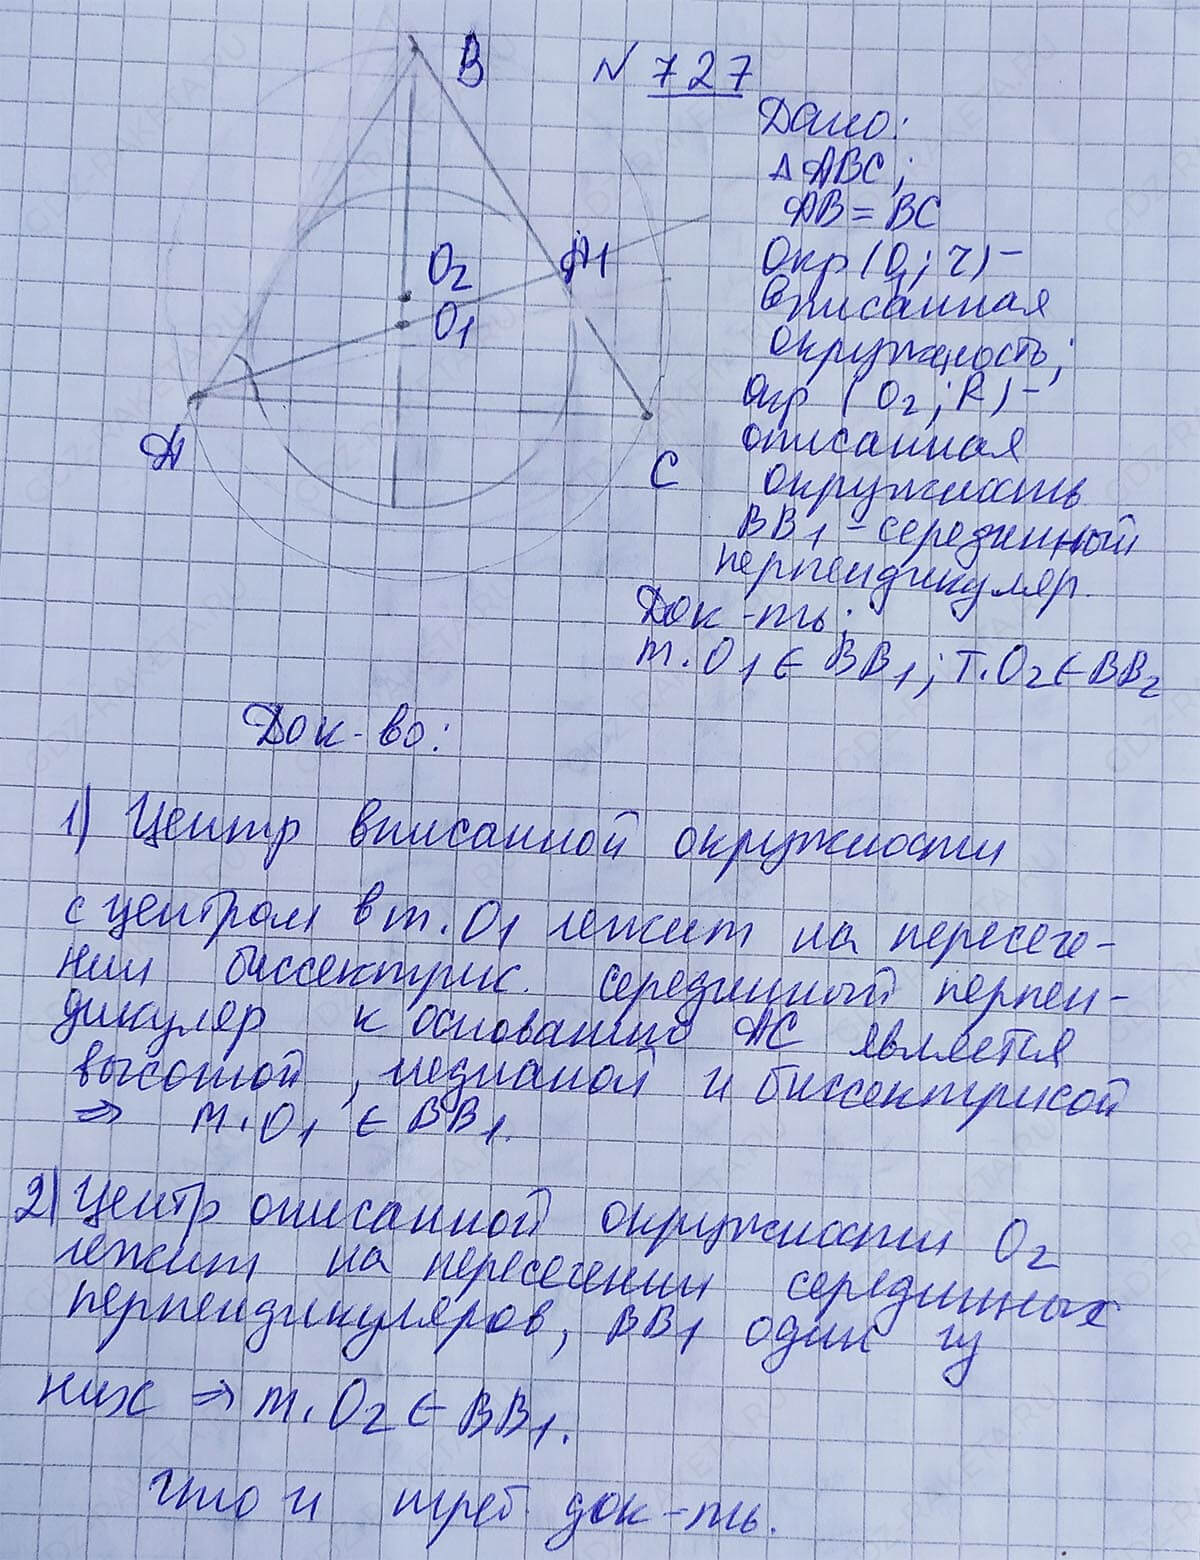 В
N 727
Дано:
Δ ABC;
AB = BC
Окр (O1; r) –
вписанная
окружность;
Окр (O2; R) –
описанная
окружность
BB1 – серединный
перпендикуляр.
A1
O2
O1
A
C
Док-ть:
т. O1 ∈ BB1; т. O2 ∈ BB2
Док-во:
1) Центр вписанной окружности
с центром в т. O1 лежит на пересече-
нии биссектрис. серединный перпен-
дикуляр к основанию AC является
высотой, медианой и биссектрисой
⇒ т. O1 ∈ BB1.
2) Центр описанной окружности O2
лежит на пересечении серединных
перпендикуляров, BB1 один из
них ⇒ т. O2 ∈ BB1.
Что и треб. док-ть.
GDZ-RAKETA.RU